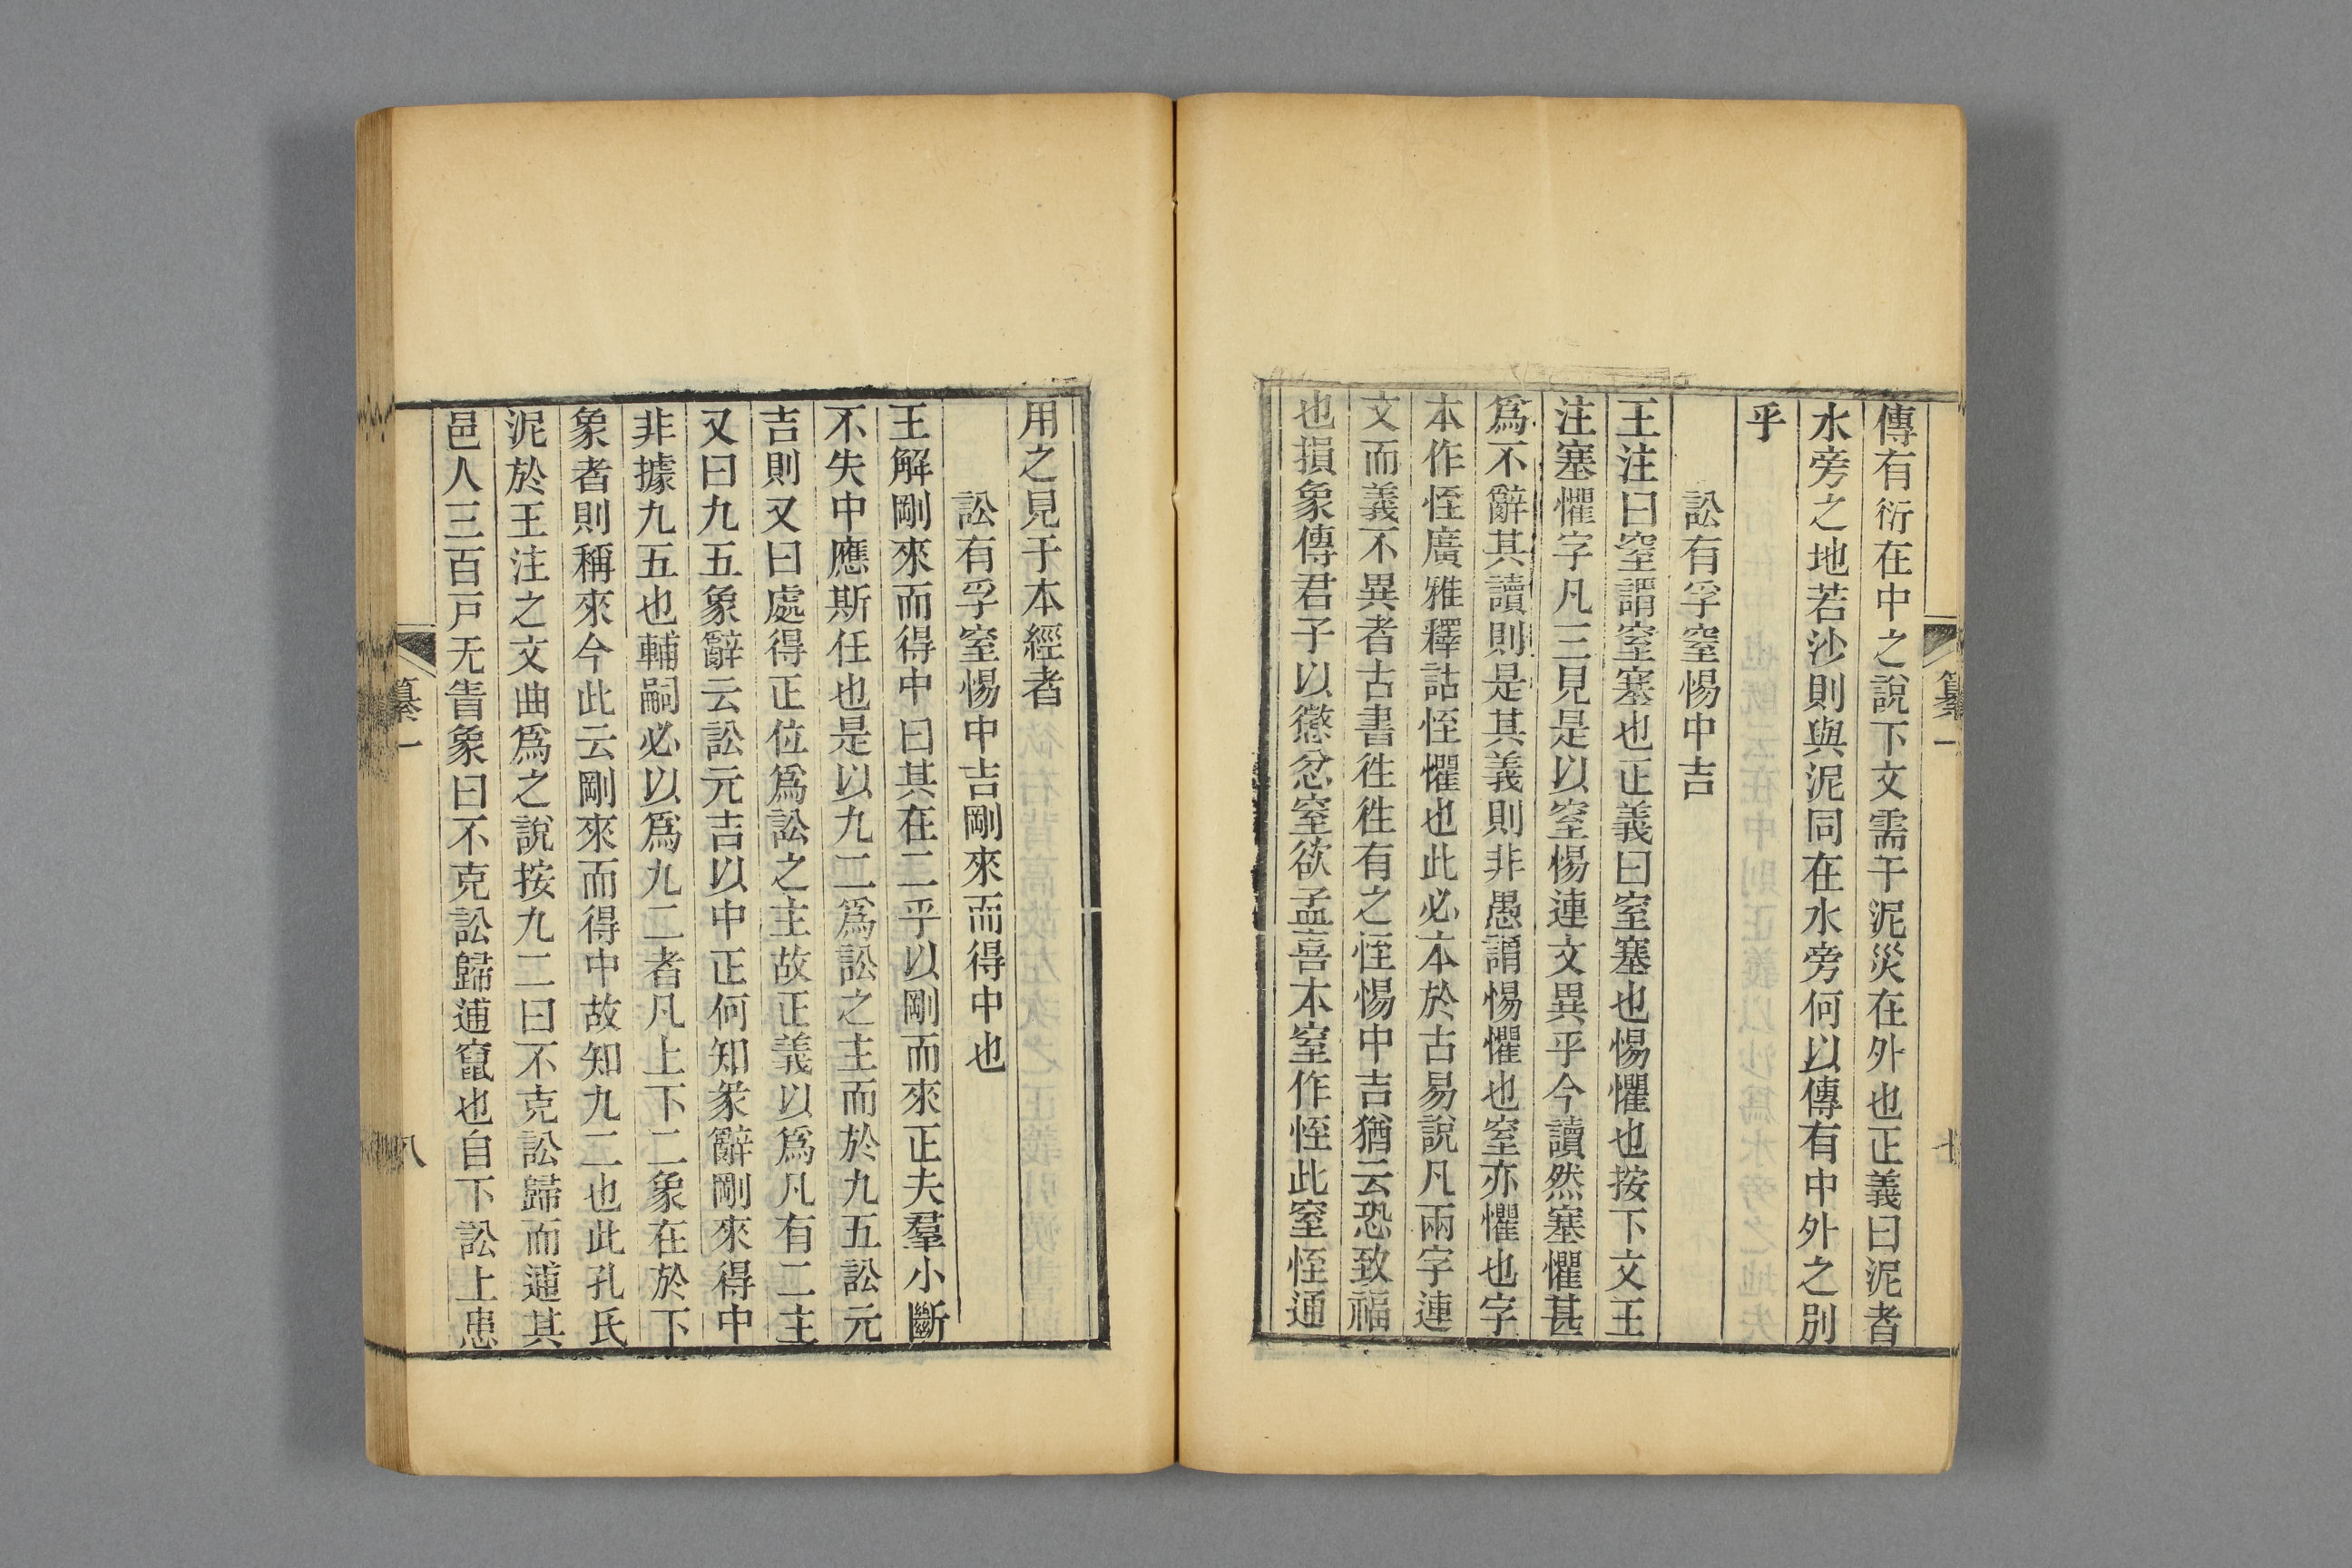 纂一
七
傳有衍在中之說下文需于泥災在外也正義曰泥者
水旁之地若沙則與泥同在水旁何以傳有中外之別
乎
訟有孚窒惕中吉
王注曰窒謂窒塞也正義曰窒塞也惕懼也按下文王
注塞懼字凡三見是以窒惕連文異乎今讀然塞懼甚
爲不辭其讀則是其義則非愚謂惕懼也窒亦懼也字
本作恎廣雅釋詁恎懼也此必本於古易說凡兩字連
文而義不異者古書徃徃有之恎惕中吉猶云恐致福
也損象傳君子以懲忿窒欲孟喜本窒作恎此窒恎通
用之見于本經者
訟有孚窒惕中吉剛來而得中也
王解剛來而得中曰其在二乎以剛而來正夫羣小斷
不失中應斯任也是以九二爲訟之主而於九五訟元
吉則又曰處得正位爲訟之主故正義以爲凡有二主
又曰九五象辭云訟元吉以中正何知彖辭剛來得中
非據九五也輔嗣必以爲九二者凡上下二象在於下
象者則稱來今此云剛來而得中故知九二也此孔氏
泥於王注之文曲爲之說按九二曰不克訟歸而逋其
邑人三百戸无眚象曰不克訟歸逋竄也自下訟上患
纂一
八